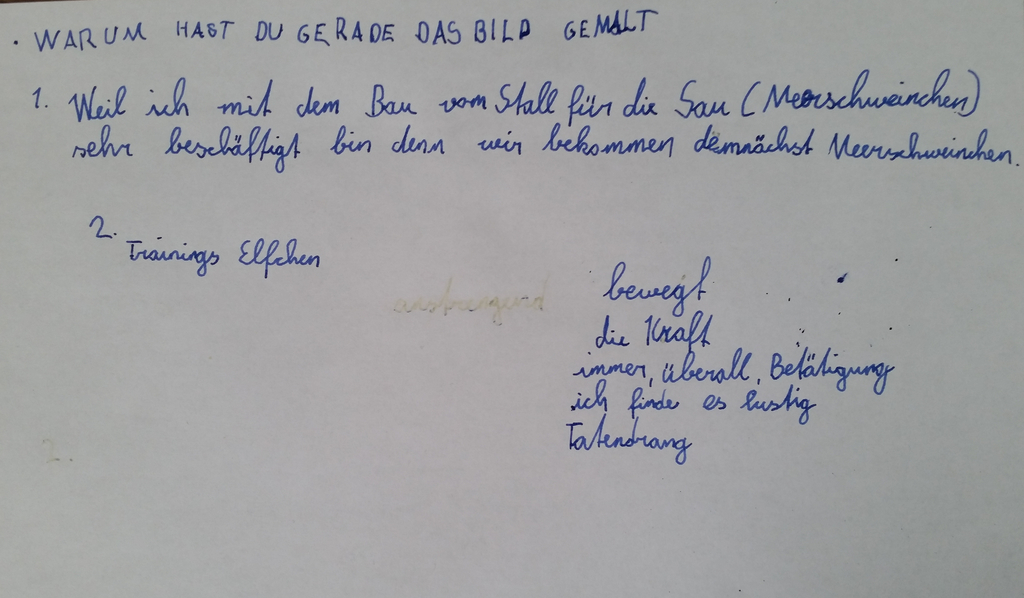 · WARUM HAST DU GERADE DAS BILD GEMALT
1. Weil ich mit dem Bau vom Stall für die Sau (Meerschweinchen)
sehr beschäftigt bin denn wir bekommen demnächst Meerschweinchen.
2.
Trainings Elfchen
anstrengend
bewegt
die Kraft
immer, überall, Betätigung
ich finde es lustig
Tatendrang
2.